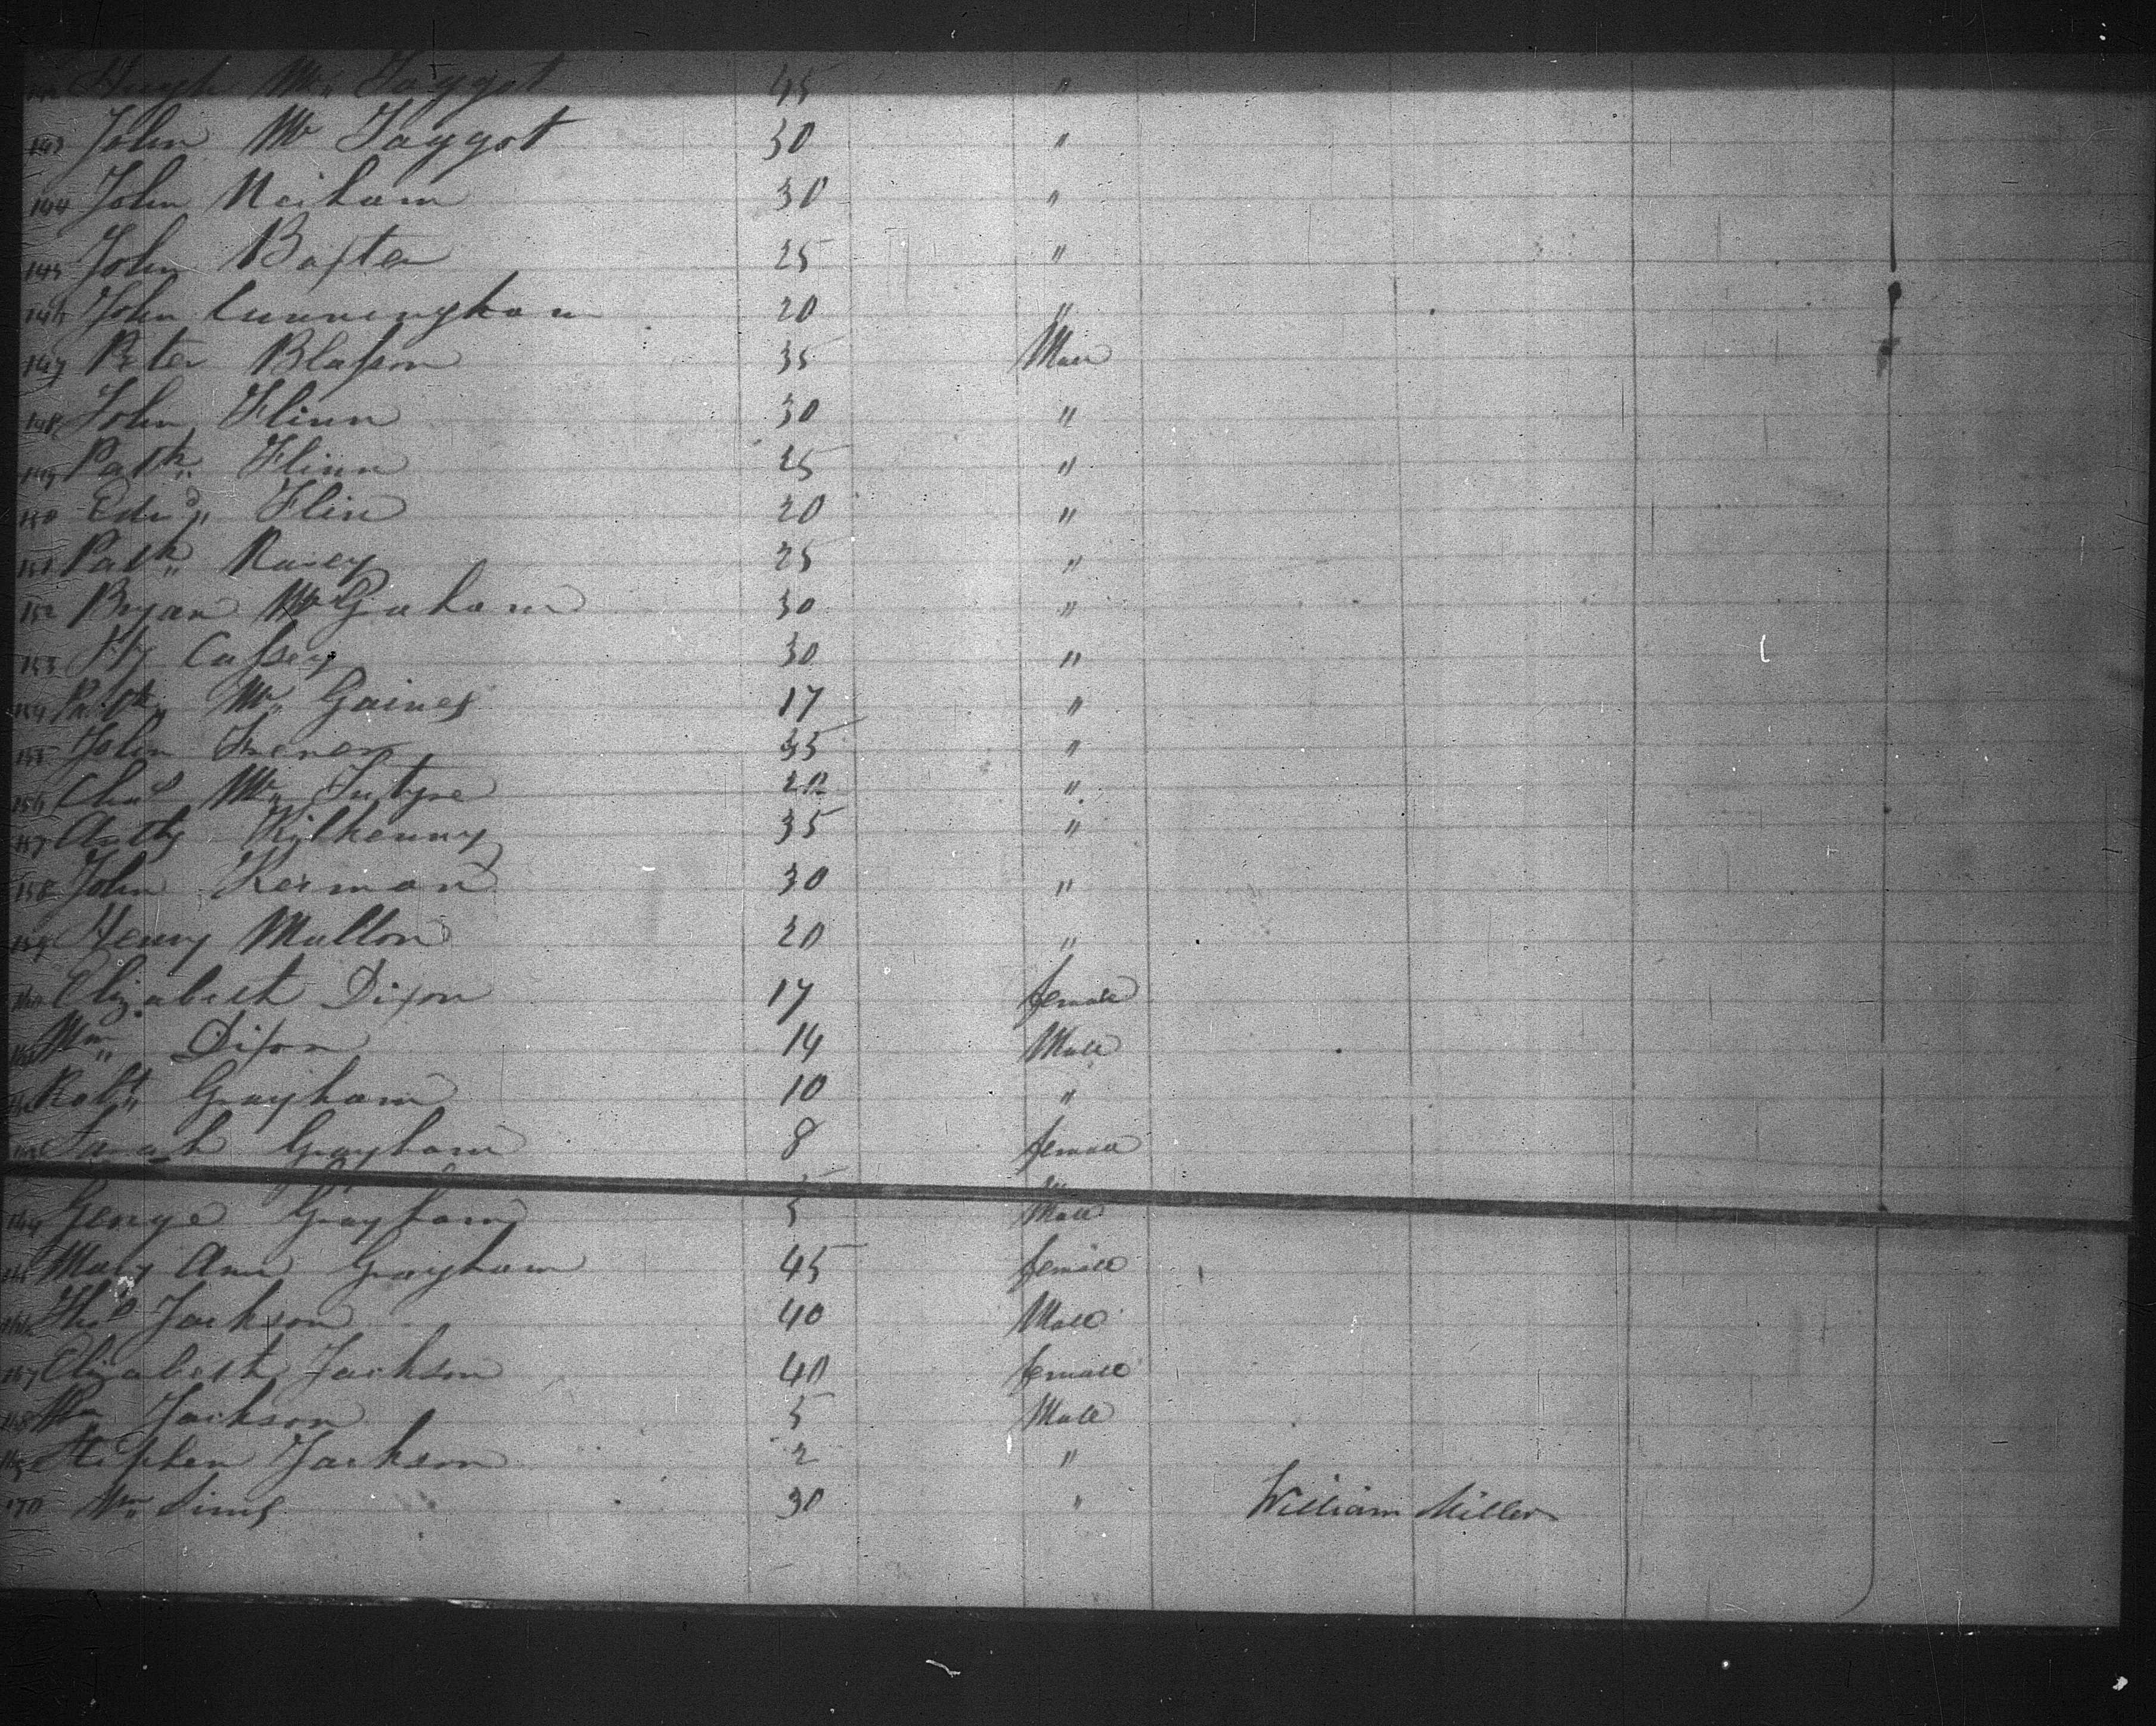 142 Hugh Mc Taggot 45 "
143 John Mc Taggot 30 "
144 John Neiham 30 "
145 John Baxter 25 "
146 John Cunningham 20 "
147 Peter Blasson 35 Male
148 John Flinn 30 "
149 Patk. Flinn 25 "
150 Edwd. Flin 20 "
151 Patk. 25 "
152 Bryan McGraham 30 "
153 Hy Cassey 30 "
154 Patk. Mc Gaines 17 "
155 John 35 "
156 Chas Mc Intyre "
157 Anty Kilkenny 35 "
158 John Kerman 30 "
159 Henry Mullon 20 "
160 Elizabeth Dixon 17 female
161 Wm. Dixon 14 Male
162 Robt. Grayham 10 "
163 Sarah Grayham 8 female
164 George Grayham 5 Male
165 Mary Ann Grayham 45 female
166 Thos Jackson 40 Male
167 Elizabeth Jackson 40 female
168 Wm Jackson 5 Male
169 Stephen Jackson 2 "
170 Wm. Sims 30 " William Miller